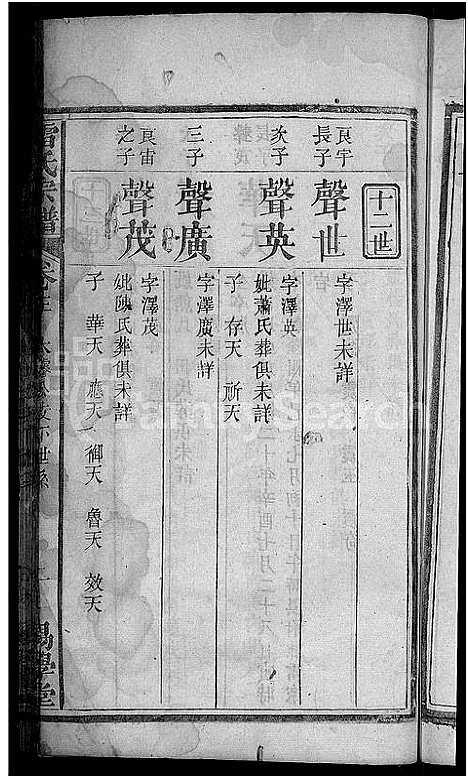 十二世
良宇長子
聲世
字澤世未詳
次子
聲英
字澤英
妣蕭氏葬俱未詳
子 存天 祈天
三子
聲廣
字澤廣未詳
良宙之子
聲茂
字澤茂
妣陳氏葬俱未詳
子 華天 應天 御天 魯天 效天
雷氏宗譜
卷三
FamilySearch